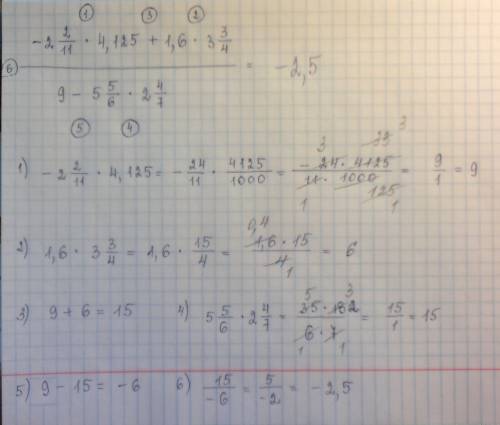 ① ③ ②
⑥ (-2 2/11 · 4,125 + 1,6 · 3 3/4) / (9 - 5 5/6 · 2 4/7) = -2,5
⑤ ④
1) -2 2/11 · 4,125 = -24/11 · 4125/1000 = (-24 · 4125)/(11 · 1000) = 9/1 = 9
2) 1,6 · 3 3/4 = 1,6 · 15/4 = (1,6 · 15)/4 = 6
3) 9 + 6 = 15 4) 5 5/6 · 2 4/7 = (35 · 182)/(6 · 7) = 15/1 = 15
5) 9 - 15 = -6 6) 15/-6 = 5/-2 = -2,5